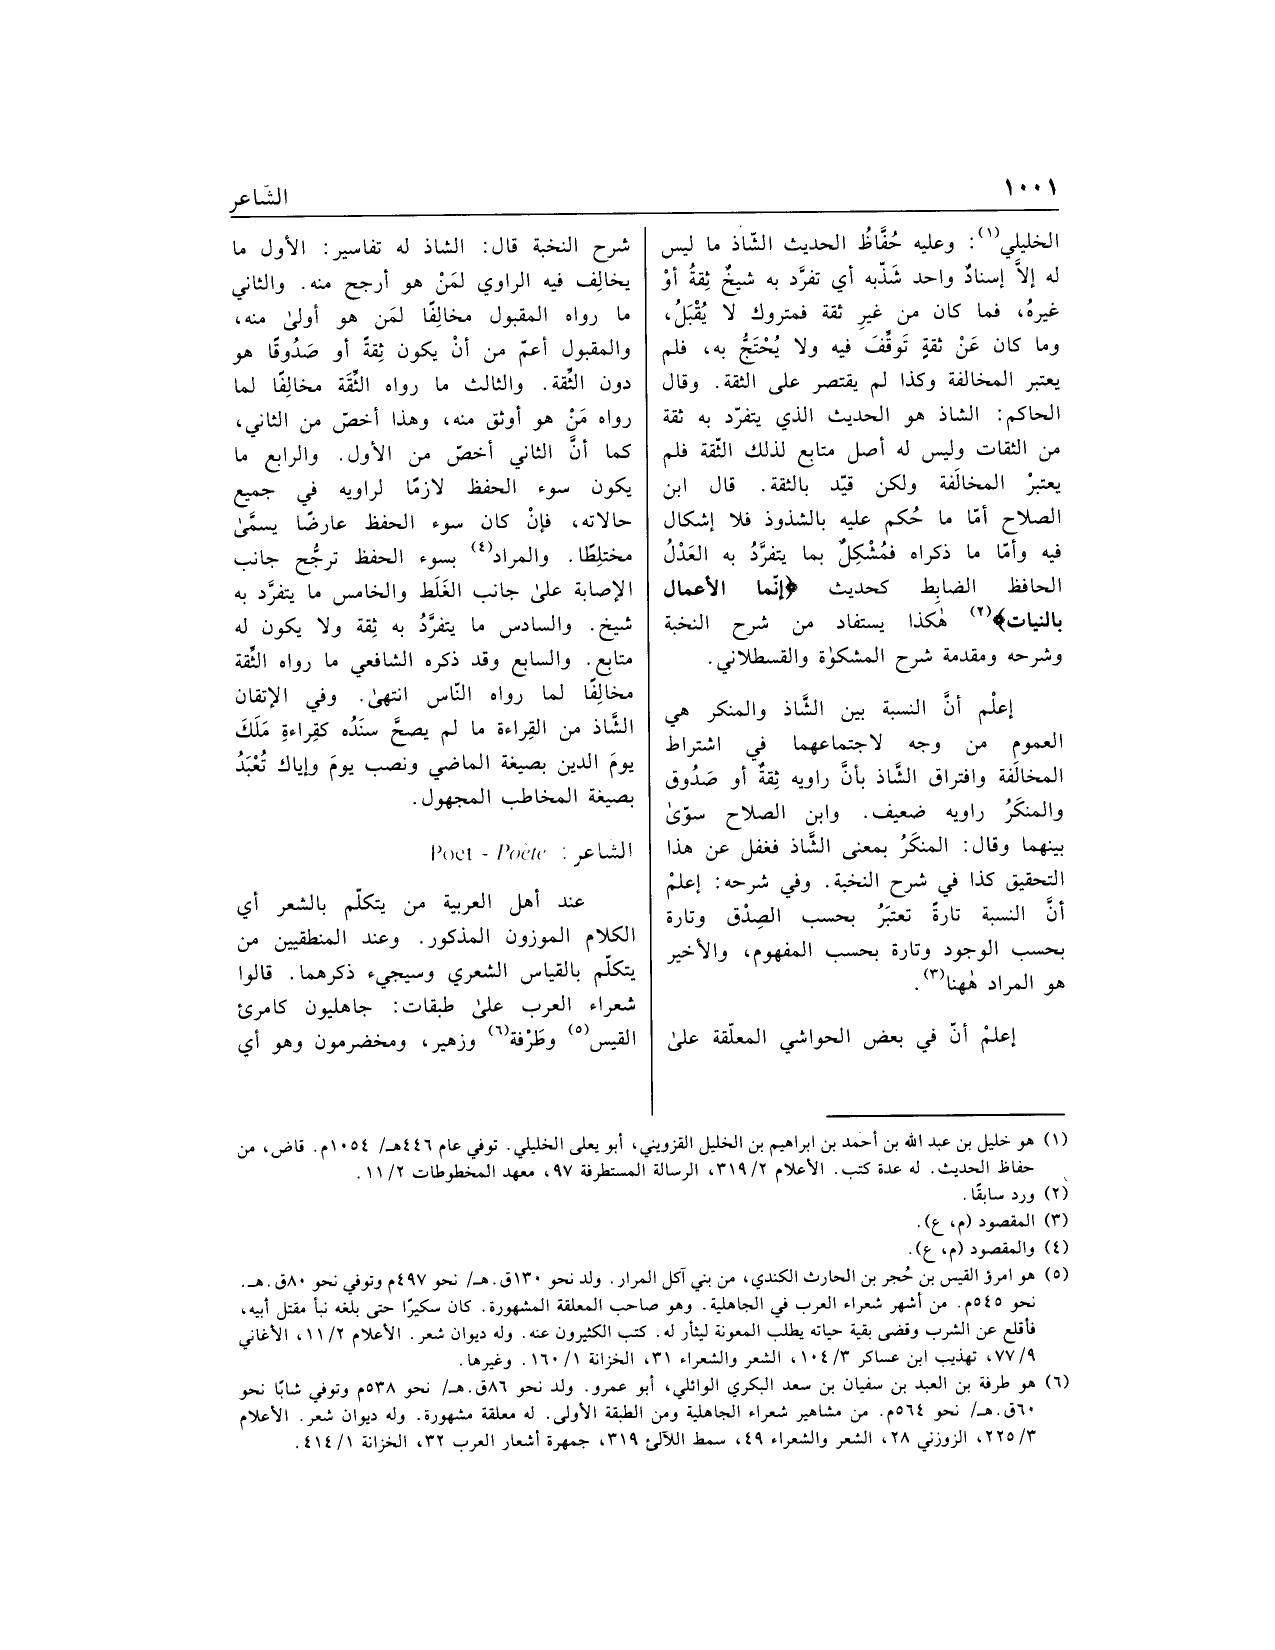 ١٠٠١
الشّاعر
الخليلي(١): وعليه حُفَّاظُ الحديث الشّاذ ما ليس
له إلاَّ إسنادٌ واحد شَذّبه أي تفرَّد به شيخٌ ثِقةُ أوْ
غيرهُ، فما كان من غيرِ ثقة فمتروك لا يُقْبَلُ،
وما كان عَنْ ثقةٍ تَوقِّفَ فيه ولا يُحْتَجُّ به، فلم
يعتبر المخالفة وكذا لم يقتصر على الثقة. وقال
الحاكم: الشاذ هو الحديث الذي يتفرّد به ثقة
من الثقات وليس له أصل متابع لذلك الثّقة فلم
يعتبرْ المخالَفة ولكن قيّد بالثقة. قال ابن
الصلاح أمّا ما حُكم عليه بالشذوذ فلا إشكال
فيه وأمّا ما ذكراه فمُشْكِلٌ بما يتفرَّدُ به العَدْلُ
الحافظ الضابِط كحديث ﴿إنّما الأعمال
بالنيات﴾(٢) هٰكذا يستفاد من شرح النخبة
وشرحه ومقدمة شرح المشكوٰة والقسطلاني.
إعلْم أنَّ النسبة بين الشَّاذ والمنكر هي
العموم من وجه لاجتماعهما في اشتراط
المخالَفة وافتراق الشَّاذ بأنَّ راويه ثِقةٌ أو صَدُوق
والمنكَرُ راويه ضعيف. وابن الصلاح سوّىٰ
بينهما وقال: المنكَرُ بمعنى الشَّاذ فغفل عن هذا
التحقيق كذا في شرح النخبة. وفي شرحه: إعلمْ
أنَّ النسبة تارةً تعتبَرُ بحسب الصِدْق وتارة
بحسب الوجود وتارة بحسب المفهوم، والأخير
هو المراد هٰهنا(٣).
إعلمْ أنّ في بعض الحواشي المعلّقة علىٰ
شرح النخبة قال: الشاذ له تفاسير: الأول ما
يخالِف فيه الراوي لمَنْ هو أرجح منه. والثاني
ما رواه المقبول مخالِفًا لمَن هو أولىٰ منه،
والمقبول أعمّ من أنْ يكون ثِقةً أو صَدُوقًا هو
دون الثِّقة. والثالث ما رواه الثِّقَة مخالِفًا لما
رواه مَنْ هو أوثق منه، وهذا أخصّ من الثاني،
كما أنَّ الثاني أخصّ من الأول. والرابع ما
يكون سوء الحفظ لازمًا لراويه في جميع
حالاته، فإنْ كان سوء الحفظ عارضًا يسمَّىٰ
مختلِطًا. والمراد(٤) بسوء الحفظ ترجُّح جانب
الإصابة علىٰ جانب الغَلَط والخامس ما يتفرَّد به
شيخ. والسادس ما يتفرَّدُ به ثِقة ولا يكون له
متابع. والسابع وقد ذكره الشافعي ما رواه الثِّقة
مخالِفًا لما رواه النّاس انتهىٰ. وفي الإتقان
الشَّاذ من القِراءة ما لم يصحَّ سنَدُه كقِراءةِ مَلَكَ
يومَ الدين بصيغة الماضي ونصب يومَ وإياك تُعْبَدُ
بصيغة المخاطب المجهول.
الشاعر : Poet - Poète
عند أهل العربية من يتكلّم بالشعر أي
الكلام الموزون المذكور. وعند المنطقيين من
يتكلّم بالقياس الشعري وسيجيء ذكرهما. قالوا
شعراء العرب علىٰ طبقات: جاهليون كامرئ
القيس(٥) وطَرْفة(٦) وزهير، ومخضرمون وهو أي
(١) هو خليل بن عبد الله بن أحمد بن ابراهيم بن الخليل القزويني، أبو يعلى الخليلي. توفي عام ٤٤٦هـ/ ١٠٥٤م. قاض، من
حفاظ الحديث. له عدة كتب. الأعلام ٣١٩/٢، الرسالة المستطرفة ٩٧، معهد المخطوطات ١١/٢.
(٢) ورد سابقًا.
(٣) المقصود (م، ع).
(٤) والمقصود (م، ع).
(٥) هو امرؤ القيس بن حُجر بن الحارث الكندي، من بني آكل المرار. ولد نحو ١٣٠ق.هـ/ نحو ٤٩٧م وتوفي نحو ٨٠ق.هـ.
نحو ٥٤٥م. من أشهر شعراء العرب في الجاهلية. وهو صاحب المعلقة المشهورة. كان سكيرًا حتى بلغه نبأ مقتل أبيه،
فأقلع عن الشرب وقضى بقية حياته يطلب المعونة ليثأر له. كتب الكثيرون عنه. وله ديوان شعر. الأعلام ١١/٢، الأغاني
٧٧/٩، تهذيب ابن عساكر ١٠٤/٣، الشعر والشعراء ٣١، الخزانة ١٦٠/١. وغيرها.
(٦) هو طرفة بن العبد بن سفيان بن سعد البكري الوائلي، أبو عمرو. ولد نحو ٨٦ق.هـ/ نحو ٥٣٨م وتوفي شابًا نحو
٦٠ق.هـ/ نحو ٥٦٤م. من مشاهير شعراء الجاهلية ومن الطبقة الأولى. له معلقة مشهورة. وله ديوان شعر. الأعلام
٢٢٥/٣، الزوزني ٢٨، الشعر والشعراء ٤٩، سمط اللآلئ ٣١٩، جمهرة أشعار العرب ٣٢، الخزانة ٤١٤/١.